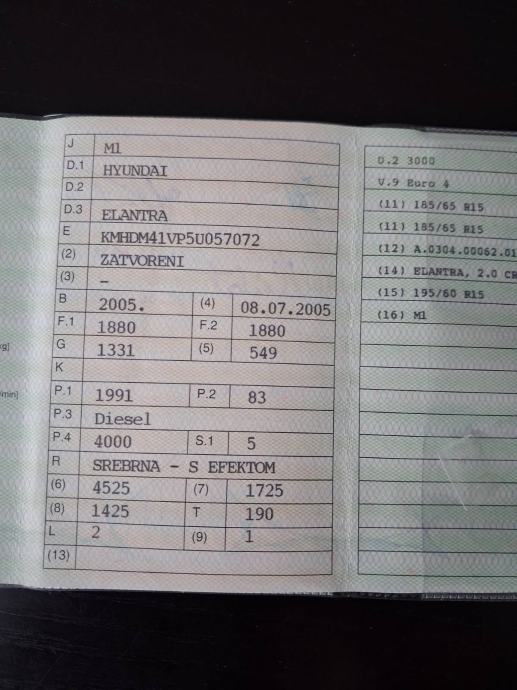 J M1
D.1 HYUNDAI
D.2
D.3 ELANTRA
E KMHDM41VP5U057072
(2) ZATVORENI
(3) –
B 2005. (4) 08.07.2005
F.1 1880 F.2 1880
G 1331 (5) 549
K
P.1 1991 P.2 83
P.3 Diesel
P.4 4000 S.1 5
R SREBRNA - S EFEKTOM
(6) 4525 (7) 1725
(8) 1425 T 190
L 2 (9) 1
(13)
U.2 3000
V.9 Euro 4
(11) 185/65 R15
(11) 185/65 R15
(12) A.0304.00062.01
(14) ELANTRA, 2.0 CR
(15) 195/60 R15
(16) M1